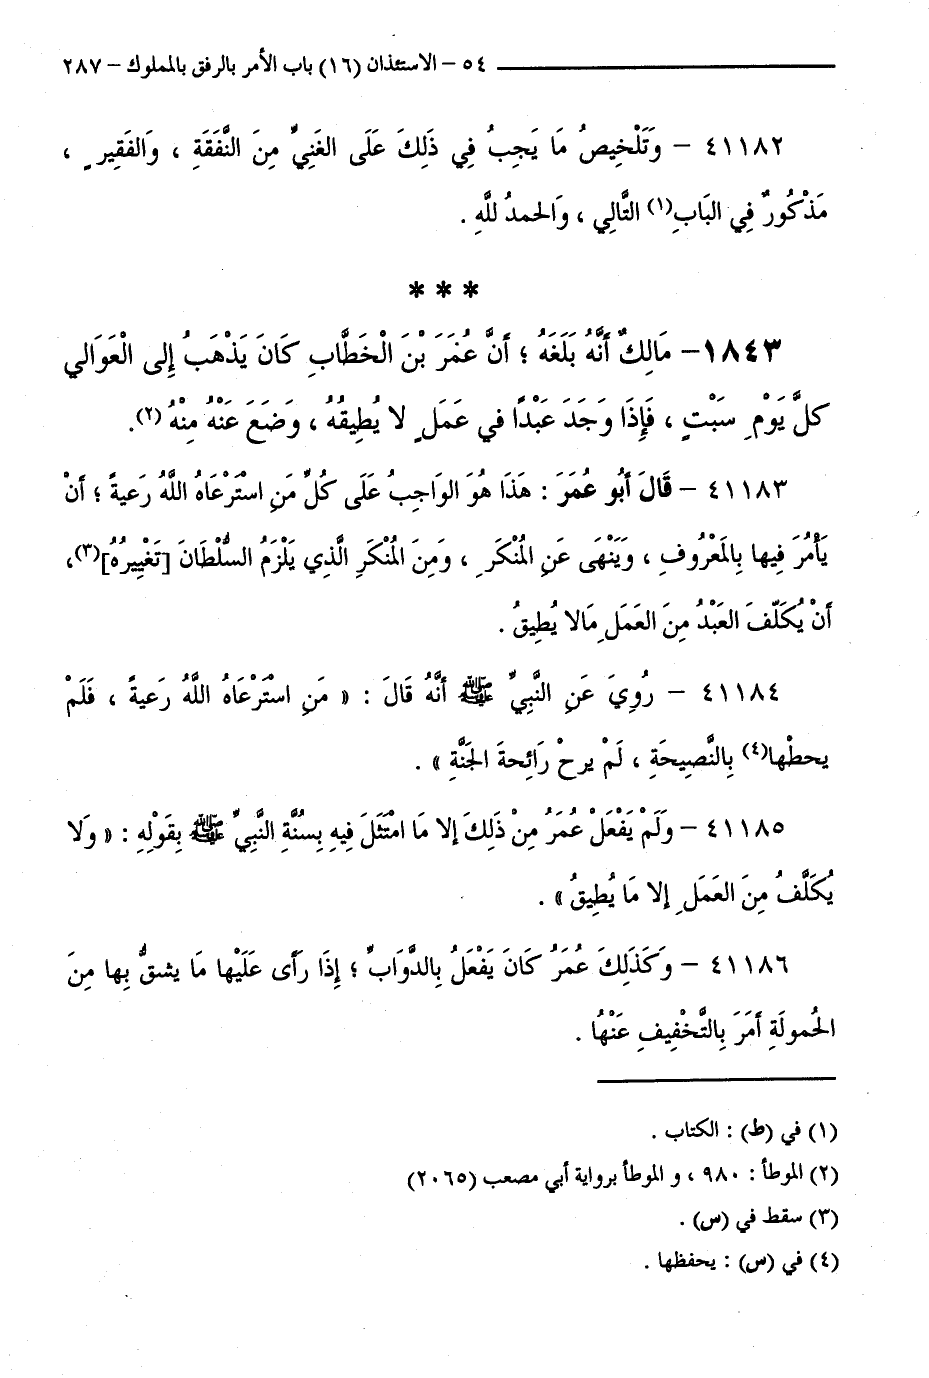 ٥٤ – الاستئذان (١٦) باب الأمر بالرفق بالمملوك – ٢٨٧
٤١١٨٢ – وَتَلْخِيصُ مَا يَجِبُ فِي ذَلِكَ عَلَى الغَنِيِّ مِنَ النَّفَقَةِ ، وَالفَقِيرِ ،
مَذْكُورٌ فِي البَابِ(١) التَّالِي ، وَالحمدُ للَّهِ .
* * *
١٨٤٣– مَالِكٌ أَنَّهُ بَلَغَهُ ؛ أَنَّ عُمَرَ بْنَ الْخَطَّابِ كَانَ يَذْهَبُ إِلى الْعَوَالي
كلَّ يَوْمِ سَبْتٍ ، فَإِذَا وَجَدَ عَبْدًا في عَمَلٍ لا يُطِيقُهُ ، وضَعَ عَنْهُ مِنْهُ (٢).
٤١١٨٣ – قَالَ أَبُو عُمَرَ : هَذَا هُوَ الوَاجِبُ عَلَى كُلِّ مَنِ استَرْعَاهُ اللَّهُ رَعيةً ؛ أَنْ
يَأْمُرَ فِيها بِالمَعْرُوفِ ، وَيَنْهَى عَنِ المُنْكَرِ ، وَمِنَ المُنْكَرِ الَّذِي يَلْزَمُ السُّلْطَانَ [تَغْيِيرُهُ](٣)،
أَنْ يُكَلّفَ العَبْدُ مِنَ العَمَلِ مَالا يُطِيقُ .
٤١١٨٤ – رُوِيَ عَنِ النَّبِيِّ ﷺ أَنَّهُ قَالَ : « مَنِ اسْتَرْعَاهُ اللَّهُ رَعيةً ، فَلَمْ
يحطْها(٤) بِالنَّصِيحَةِ ، لَمْ يرحْ رَائِحةَ الجَنَّةِ » .
٤١١٨٥ – وَلَمْ يَفْعَلْ عُمَرُ مِنْ ذَلِكَ إلا مَا امْتَثَلَ فِيهِ بِسُنَّةِ النَّبِيِّ ﷺ بِقَوْلِهِ : « وَلا
يُكَلَّفُ مِنَ العَمَلِ إِلا مَا يُطِيقُ » .
٤١١٨٦ – وَكَذَلِكَ عُمَرُ كَانَ يَفْعَلُ بِالدَّوَابِّ ؛ إِذَا رَأى عَلَيْها مَا يشقُّ بِها مِنَ
الحُمولَةِ أَمَرَ بِالتَّخْفِيفِ عَنْهُا .
(١) في (ط) : الكتاب .
(٢) الموطأ : ٩٨٠ ، و الموطأ برواية أبي مصعب (٢٠٦٥)
(٣) سقط في (س) .
(٤) في (س) : يحفظها .